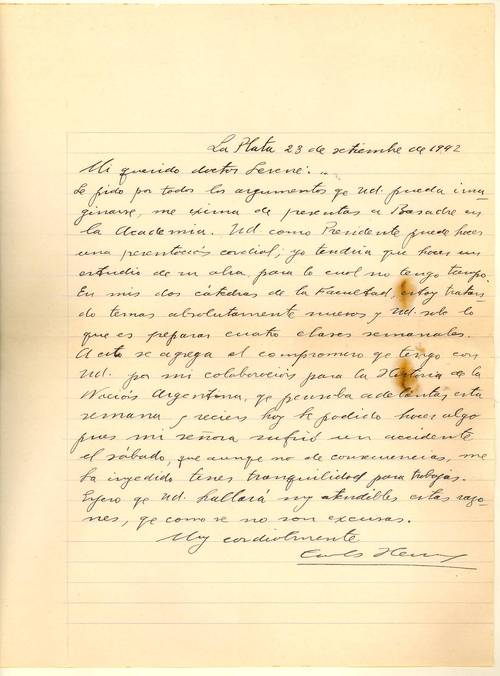 La Plata 23 de setiembre de 1942
Mi querido doctor Levene: ..
Le pido por todos los argumentos qe Ud. pueda ima-
ginarse, me exima de presentar a Basadre en
la Academia. Ud como Presidente puede hacer
una presentación cordial; yo tendría que hacer un
estudio de su obra, para lo cual no tengo tiempo.
En mis dos cátedras de la Facultad, estoy tratan-
do temas absolutamente nuevos y Ud. sabe lo
que es preparar cuatro clases semanales.
A esto se agrega el compromiso qe tengo con
Ud. por mi colaboración para la Historia de la
Nación Argentina, qe pensaba adelantar esta
semana y recien hoy he podido hacer algo
pues mi señora sufrió un accidente
el sábado, que aunqe no de consecuencias, me
ha impedido tener tranquilidad para trabajar.
Espero qe Ud. hallará muy atendibles estas razo-
nes, qe como ve no son excusas.
Muy cordialmente